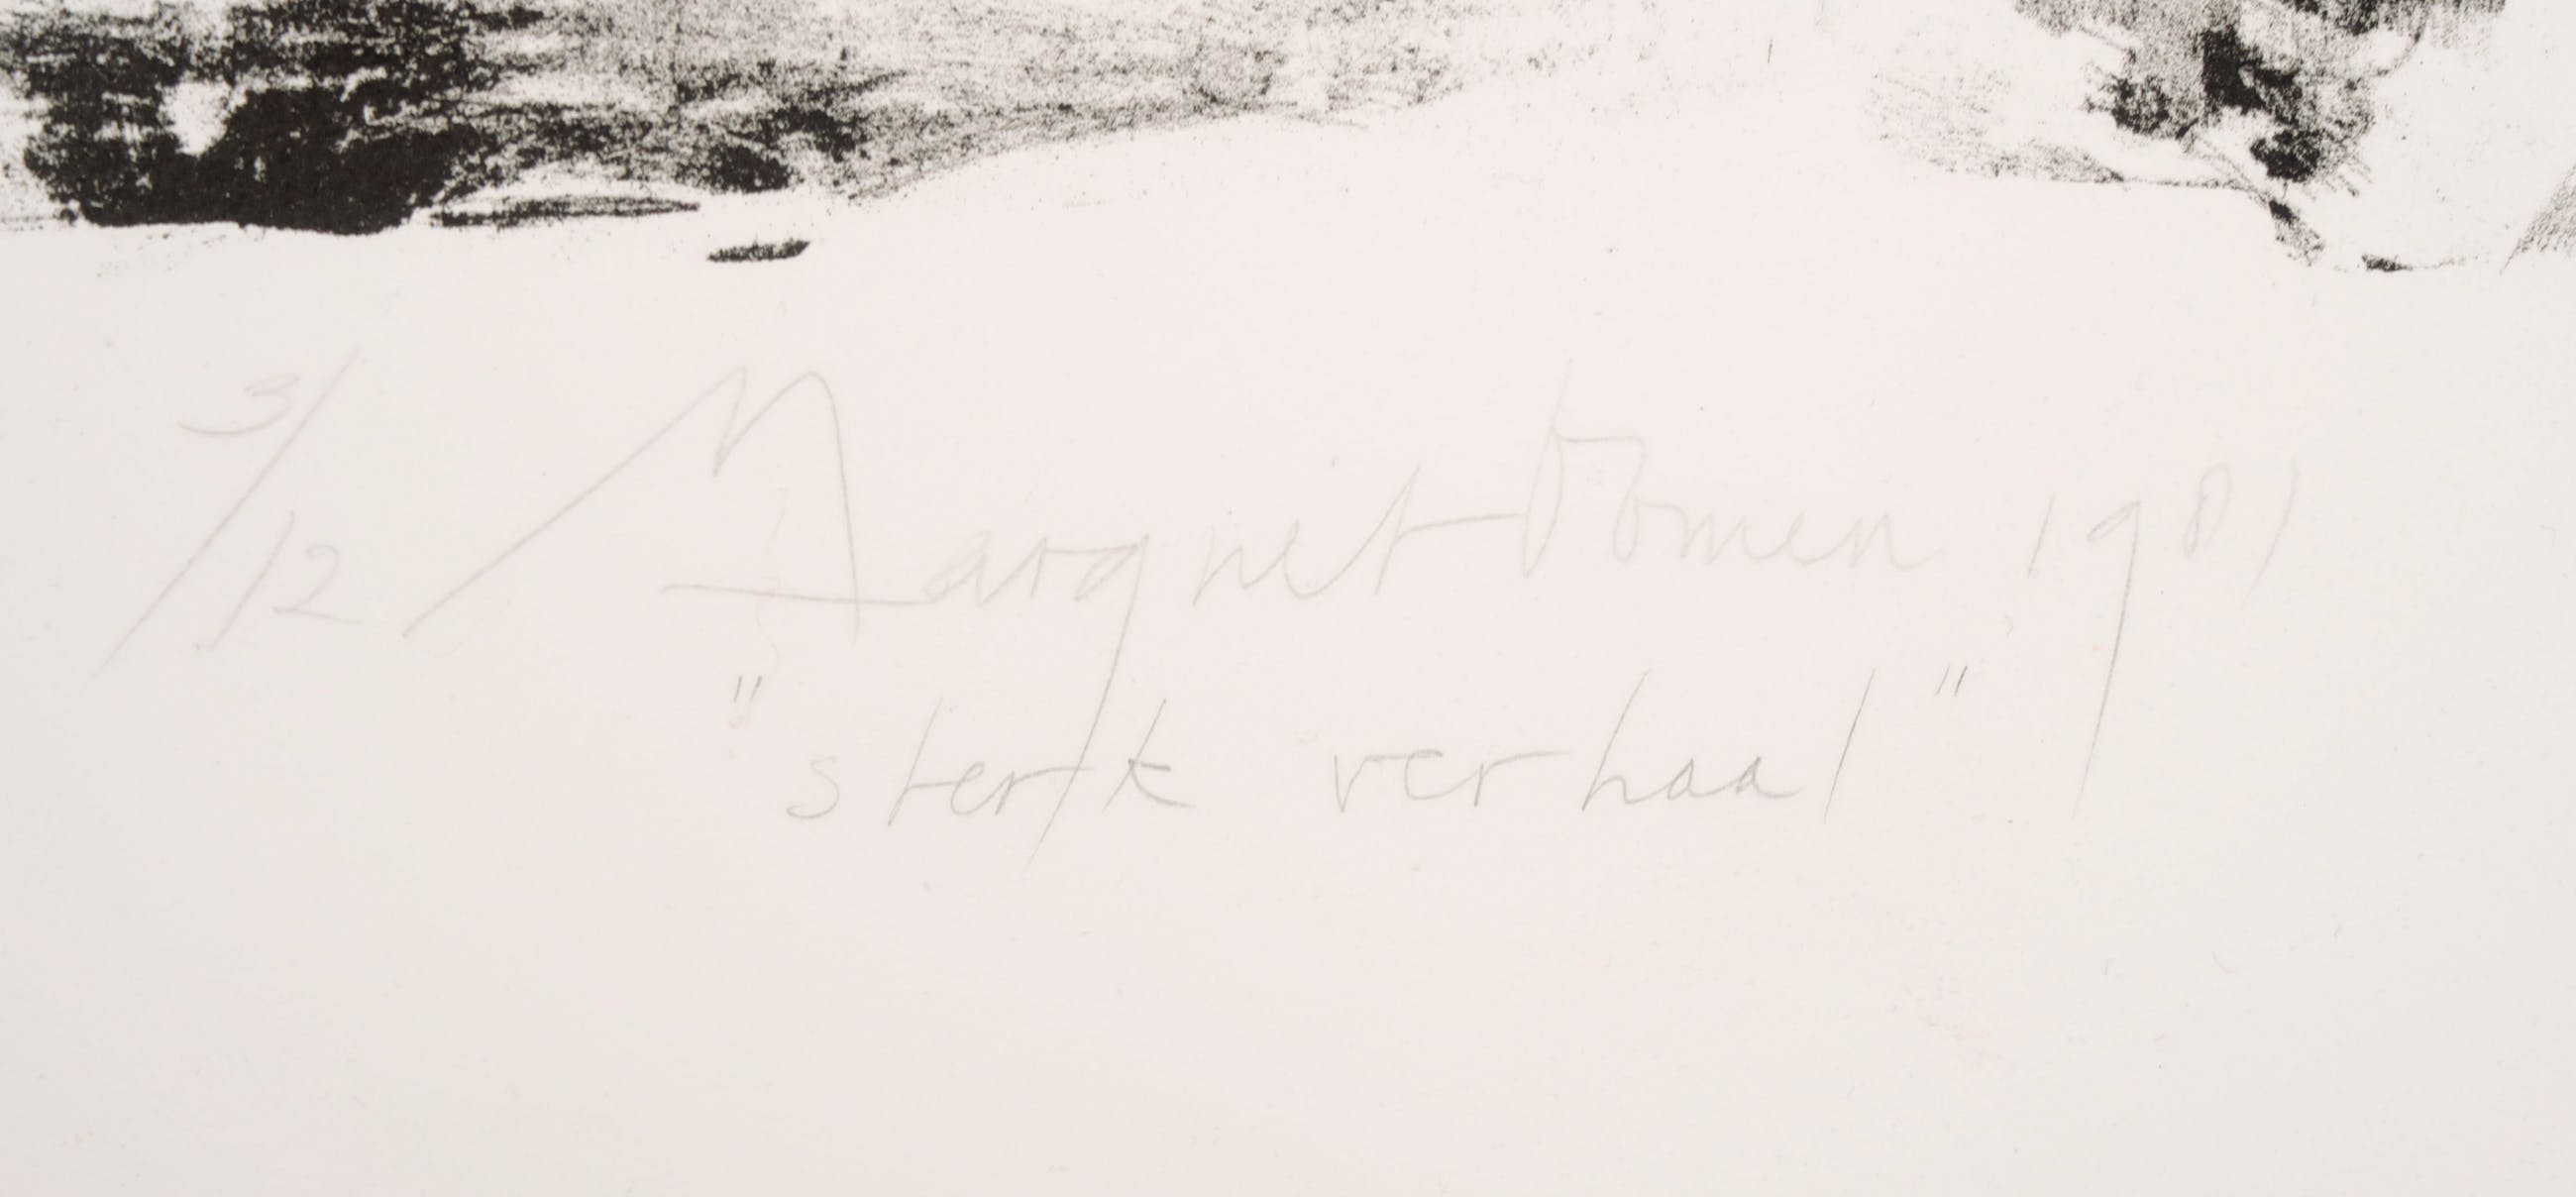 3/12 Margriet Bomen 1981
"sterk verhaal"